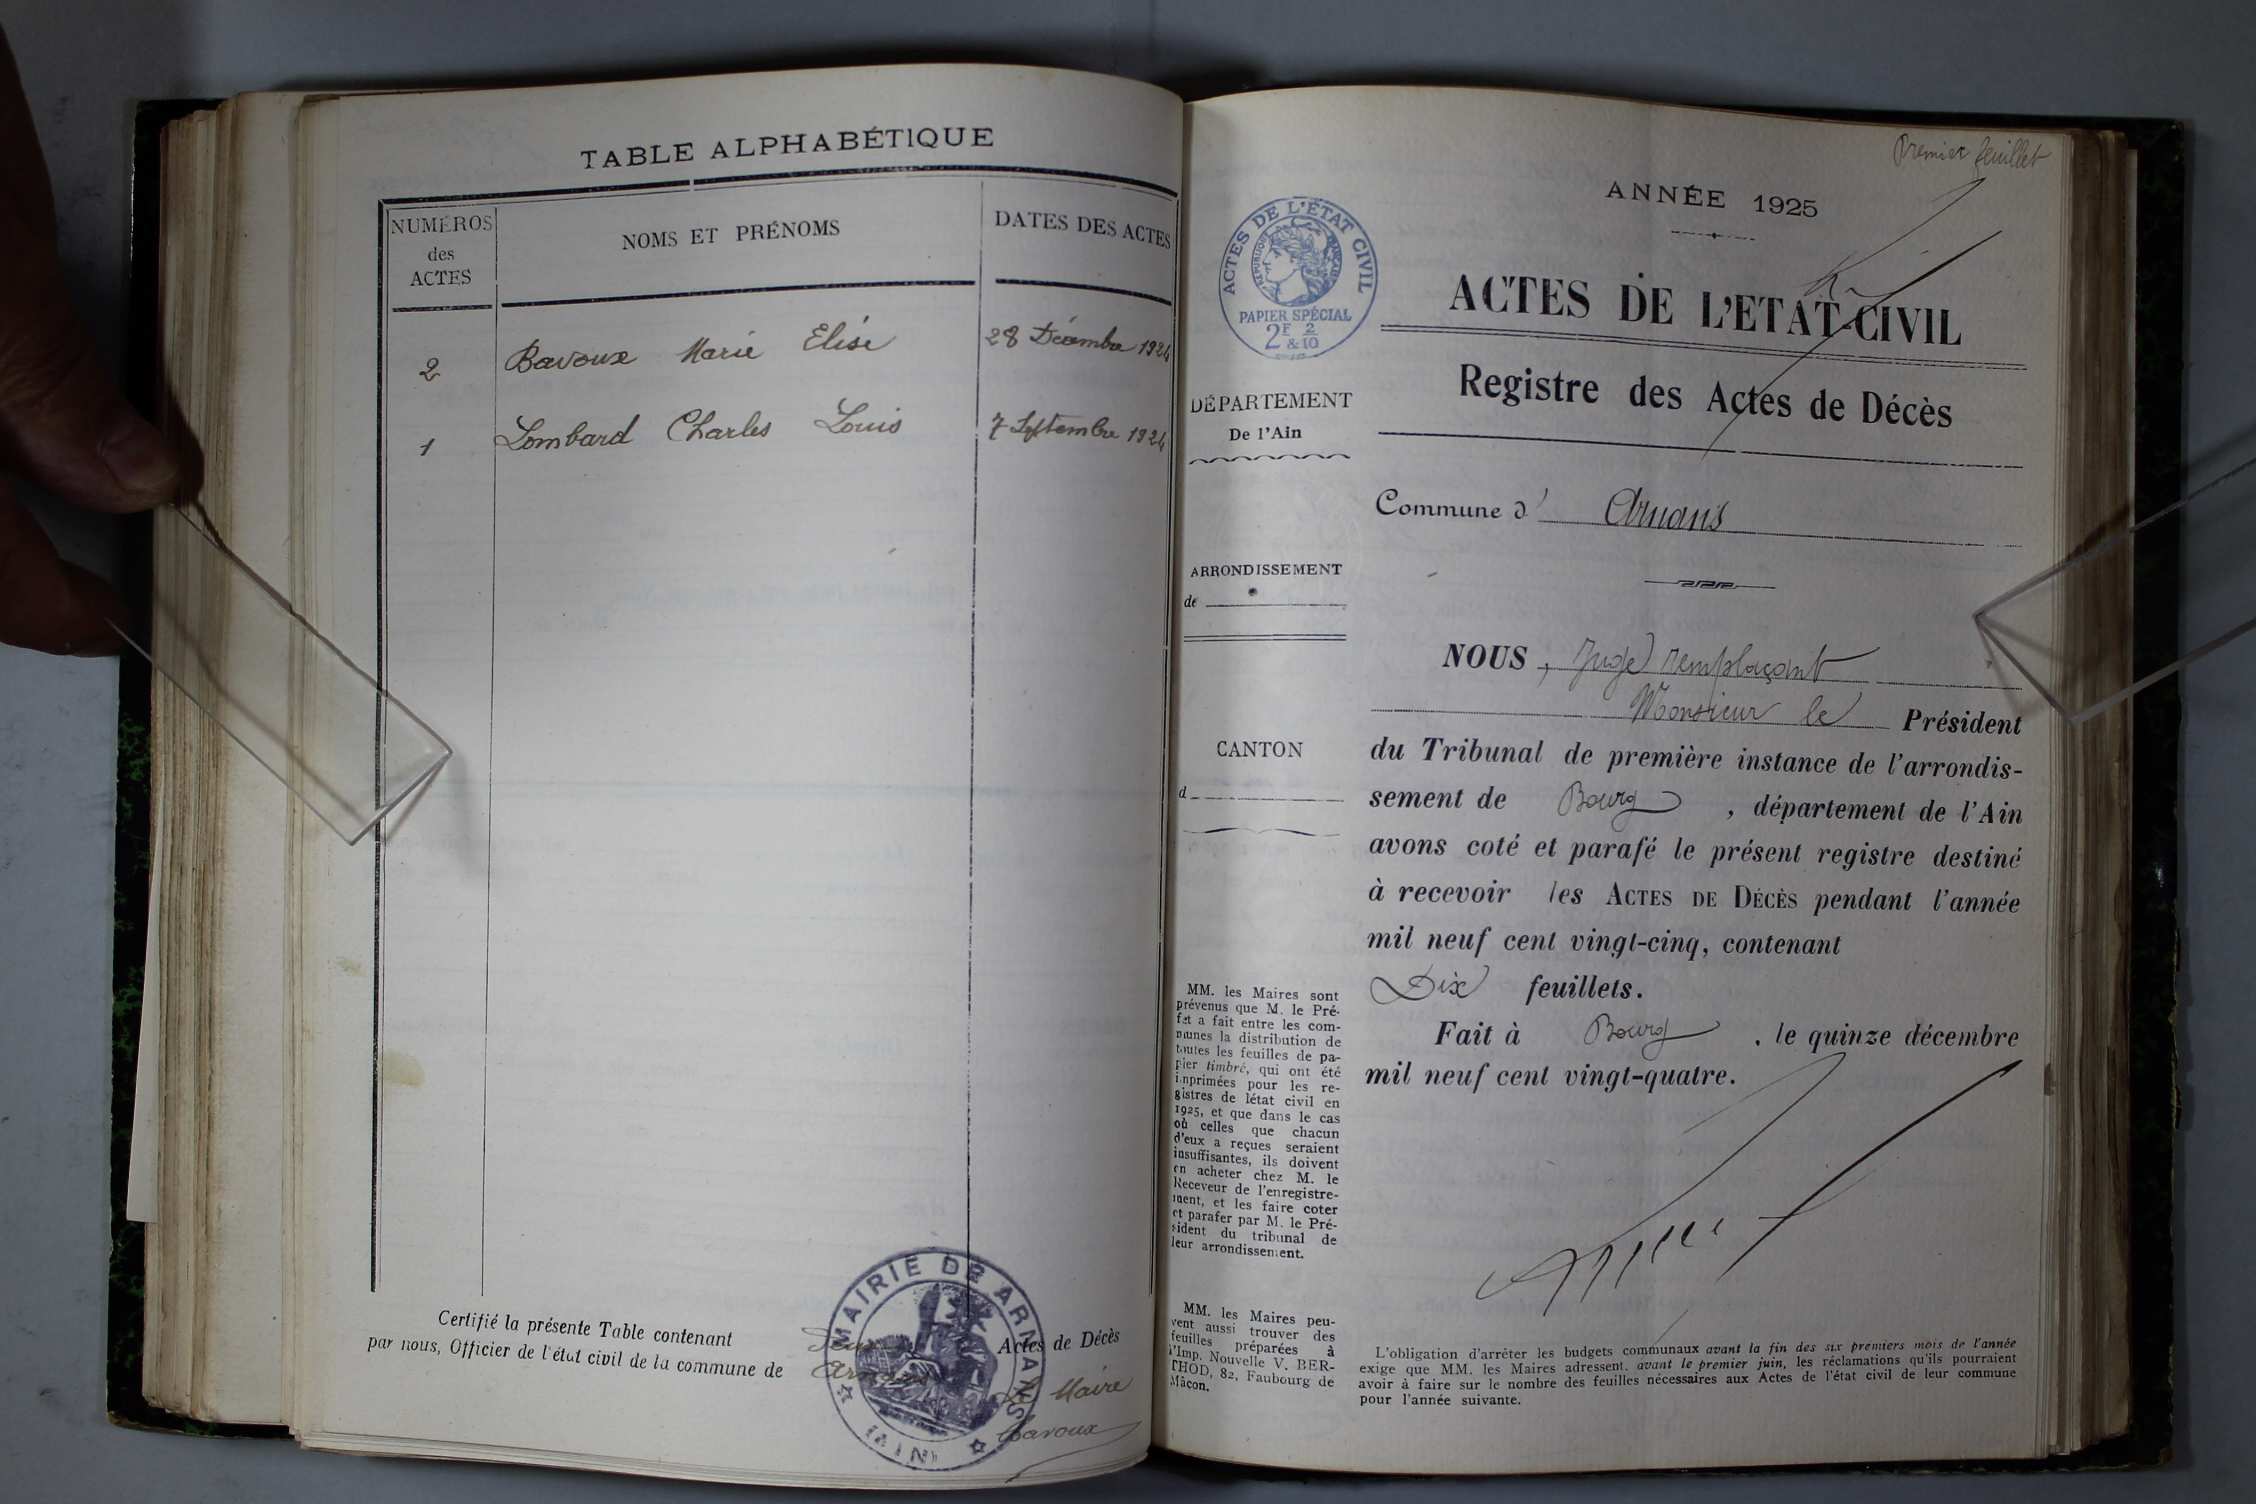 TABLE ALPHABÉTIQUE
NUMÉROS
des
ACTES
NOMS ET PRÉNOMS
DATES DES ACTES
2 Bavoux Marie Elise 28 Décembre 1924
1 Lombard Charles Louis 7 Septembre 1924
Certifié la présente Table contenant Deux Actes de Décès
par nous, Officier de l'état civil de la commune de Arnans
Le Maire
Bavoux
MAIRIE DE ARNANS
(AIN)
Premier feuillet
ANNÉE 1925
ACTES DE L'ÉTAT CIVIL
RÉPUBLIQUE FRANÇAISE
PAPIER SPÉCIAL
2F & 2/10
ACTES DE L'ETAT-CIVIL
Registre des Actes de Décès
DÉPARTEMENT
De l'Ain
Commune d' Arnans
ARRONDISSEMENT
de
CANTON
d
NOUS, Juge remplaçant
Monsieur le Président
du Tribunal de première instance de l'arrondis-
sement de Bourg, département de l'Ain
avons coté et parafé le présent registre destiné
à recevoir les ACTES DE DÉCÈS pendant l'année
mil neuf cent vingt-cinq, contenant
Dix feuillets.
Fait à Bourg, le quinze décembre
mil neuf cent vingt-quatre.
MM. les Maires sont
prévenus que M. le Pré-
fet a fait entre les com-
munes la distribution de
toutes les feuilles de pa-
pier timbré, qui ont été
imprimées pour les re-
gistres de létat civil en
1925, et que dans le cas
où celles que chacun
d'eux a reçues seraient
insuffisantes, ils doivent
en acheter chez M. le
Receveur de l'enregistre-
ment, et les faire coter
et parafer par M. le Pré-
sident du tribunal de
leur arrondissement.
MM. les Maires peu-
vent aussi trouver des
feuilles préparées à
l'Imp. Nouvelle V. BER-
THOD, 82, Faubourg de
Mâcon.
L'obligation d'arrêter les budgets communaux avant la fin des six premiers mois de l'année
exige que MM. les Maires adressent, avant le premier juin, les réclamations qu'ils pourraient
avoir à faire sur le nombre des feuilles nécessaires aux Actes de l'état civil de leur commune
pour l'année suivante.